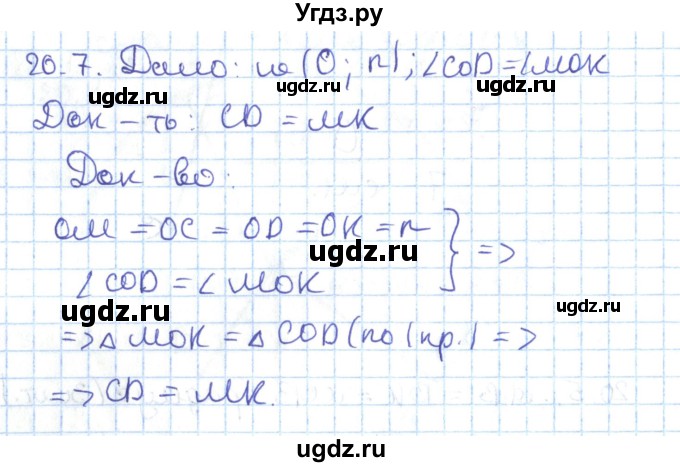 Угдз.ру
20.7. Дано: w (O; r); ∠COD = ∠MOK
ugdz.ru ugdz.ru
Док-ть: CD = MK
ugdz.ru ugdz.ru
Док-во:
OM = OC = OD = OK = r } =>
ugdz.ru
∠COD = ∠MOK
ugdz.ru
=> △MOK = △COD (по I пр.) =>
ugdz.ru
=> CD = MK.
ugdz.ru
ugdz.ru